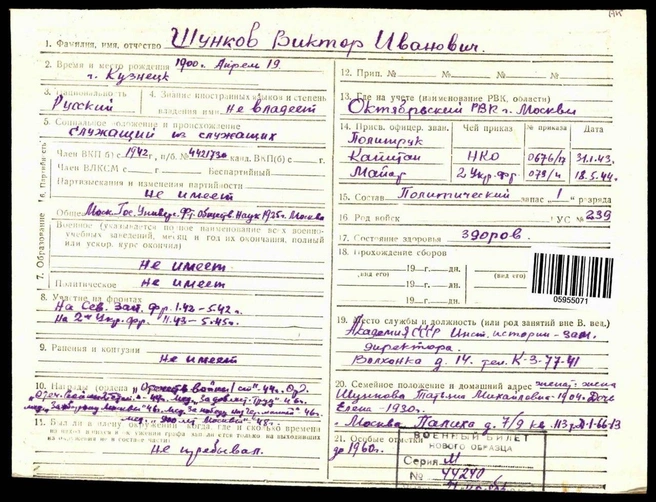 1. Фамилия, имя, отчество Шунков Виктор Иванович.
2. Время и место рождения 1900 г. Апрель 19
г. Кузнецк
3. Национальность
Русский
4. Знание иностранных языков и степень
владения ими не владеет
5. Социальное положение и происхождение
служащий из служащих
6. Партийность
Член ВКП(б) с 1942 г., п/б. № 4421730 канд. ВКП(б) с г.
Член ВЛКСМ с г. Беспартийный
Партвзыскания и изменения партийности
не имеет
7. Образование
Общее Моск. Гос. Универс. Фт. Обществ. Наук 1925 г. Москва
Военное (указывается полное наименование воен-
учебных заведений, месяц и год их окончания, полный
или ускор. курс окончил)
не имеет
Политическое не имеет
8. Участие на фронтах
На Сев. Зап. фр. 1.42 – 5.42 г.
На 2м Укр. фр. 11.43 – 5.45 г.
9. Ранения и контузии
не имеет
10. Награды (ордена
11. Был ли в окружении когда, где и сколько времени
не пребывал.
12. Прип. № № № №
13. Где на учете (наименование РВК, области)
Октябрский РВК г. Москвы
14. Присв. офицер. зван. Чей приказ № приказа Дата
Политрук
Капитан НКО 0676/п 31.1.43.
Майор 2 Укр. Фр. 079/н 18.5.44.
15. Состав Политический запас 1 разряда
16. Род войск УС № 239
17. Состояние здоровья здоров.
18. Прохождение сборов
19 г. дн. 19 г. дн.
(вид его) (вид его)
19 г. дн. 19 г. дн.
05955071
19. Место службы и должность (или род занятий вне В. вед.)
Академия СССР Инст. истории - зам.
директора.
Волхонка д. 14. тел. К-3-77-41
20. Семейное положение и домашний адрес женат: жена
Шункова Татьяна Михайловна - 1904. Дочь
Елена - 1930 г.
г. Москва Палиха д. 7/9 кв. 113 Д-1-66-13
21. Особые отметки
до 1960 г.
ВОЕННЫЙ БИЛЕТ
НОВОГО ОБРАЗЦА
Серия М
№ 44240